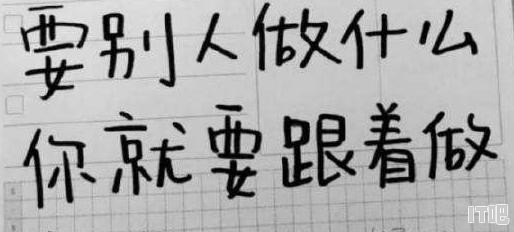 要别人做什么
你就要跟着做
IT吧